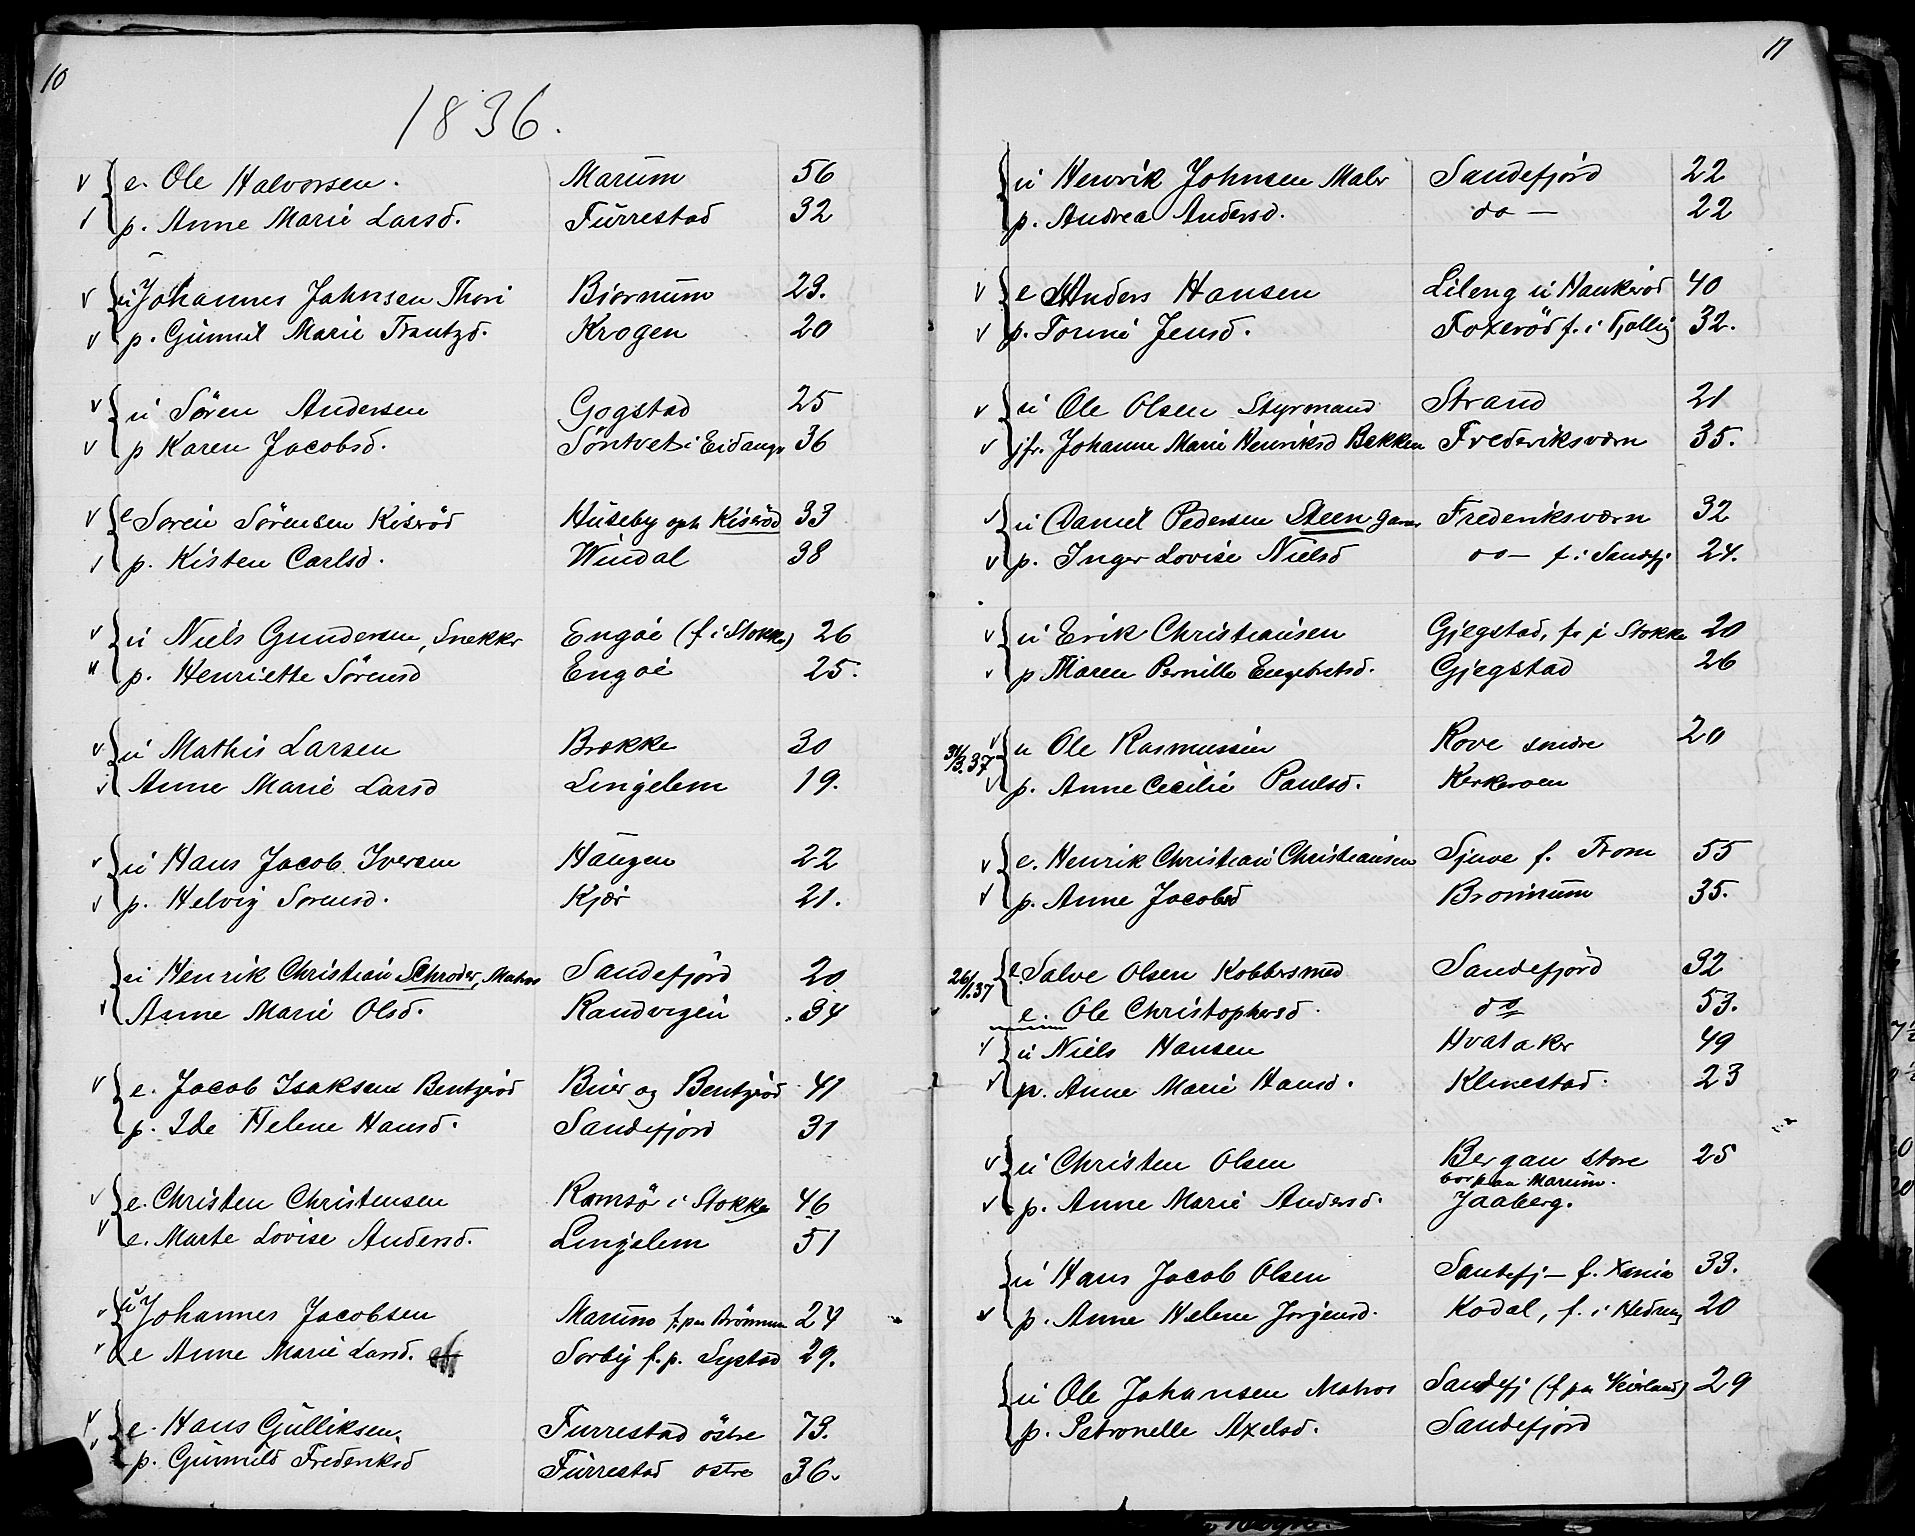 10
1836.
e. Ole Halvorsen. Marum 56
p. Anne Marie Larsd. Furrestad 32
u Johannes Jahnsen Thori Biornum 23.
p. Gunnil Marie Frantzd. Krogen 20
u Søren Andersen Gogstad 25
p Karen Jacobsd. Söntvet i Eidang 36
e Soren Sörensen Kisröd Huseby og Kisröd 33
p. Kisten Carlsd. Windal 38
u Niels Gundersen, Snekkr Engoe (f i Stokke) 26
p. Henriette Sörensd Engoe 25.
u Mathis Larsen Brekke 30
Anne Marie Larsd Lingelem 19.
u Hans Jacob Iversen Haugen 22
p. Helvig Sorensd. Kjær 21.
u Henrik Christian Schroder, Matros Sandefjörd 20
Anne Marie Olsd. Randvigen 34
e. Jacob Isaksen Bentzröd Buer og Bentzröd 41
p. Ide Helene Hansd. Sandefjord 31
e. Christen Christensen Ramsö i Stokke 46
e. Marte Lovise Andersd. Lingelem 51
u Johannes Jacobsen Marum f. paa Brönnum 24
e Anne Marie Larsd. Sorby f. p. Lystad 29.
e. Hans Gulliksen. Furrestad östre 73.
p. Gunnild Frederiksd Furrestad ostre 36.
11
u Henrik Johnsen Maler Sandefjörd 22
p. Andrea Andersd. do — 22
e Anders Hansen Lileng u Haukeröd 40
p. Torine Jensd. Foxeröd f. i Tjølling 32.
u Ole Olsen Styrmand Strand 21
jfr. Johanne Marie Henriksd Bekken Frederiksværn 35.
u Daniel Pedersen Steen Frederiksværn 32
p. Inger Lovise Nielsd do — f. i Sandefj 24.
u Erik Christiansen Gjegstad, fr i Stokke 20
p Maren Pernille Engebretsd. Gjegstad 26
31/3.37 u Ole Rasmussen Rove søndre 20
p. Anne Cecilie Paulsd. Kerkevoen
e. Henrik Christian Christiansen Sjuve f. Trom 55
p. Anne Jacobsd Bronnum 35.
26/1.37 e. Salve Olsen Kobbersmed Sandefjörd 32
e. Ole Christophersd. do 53.
u Niels Hansen Hvataker 49
p. Anne Marie Hansd. Klinestad. 23
u Christen Olsen Bergan store 25
bor paa Marum.
p. Anne Marie Andersd. Jaaberg.
u Hans Jacob Olsen Sandefj — f. Xania 33.
p. Anne Helene Jorgensd. Kodal, f. i Hedrum 20
u Ole Johansen Matros Sandefj (f paa Veierland) 29
p. Petronelle Axelsd. Sandefjörd